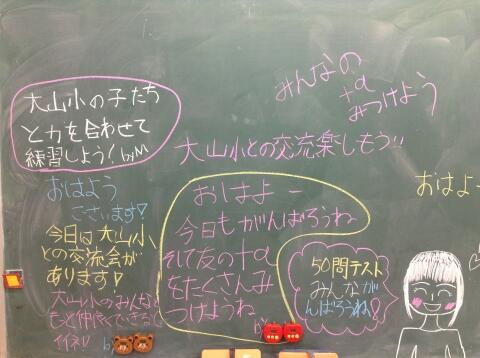 大山小の子たち
と力を合わせて
練習しよう! byM
みんなの
+α
みつけよう
大山小との交流楽しもう!!
おはよう
ございます!
今日は大山小
との交流会が
あります!
大山小のみんなと
もっと仲良くできると
イイネ!
by
おはよー
今日もがんばろうね
そして友の+α
をたくさんみ
つけようね
by
50問テスト
みんなが
んばろうね!
おはよー